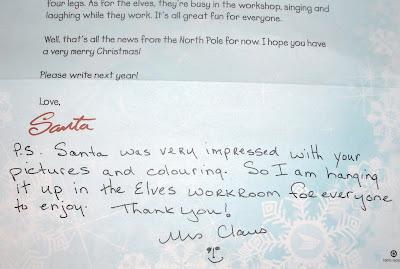 four legs. As for the elves, they're busy in the workshop, singing and
laughing while they work. It's all great fun for everyone.
Well, that's all the news from the North Pole for now. I hope you have
a very merry Christmas!
Please write next year!
Love,
Santa
P.S. Santa was very impressed with your
pictures and colouring. So I am hanging
it up in the Elves workroom for everyone
to enjoy. Thank you!
Mrs Claus